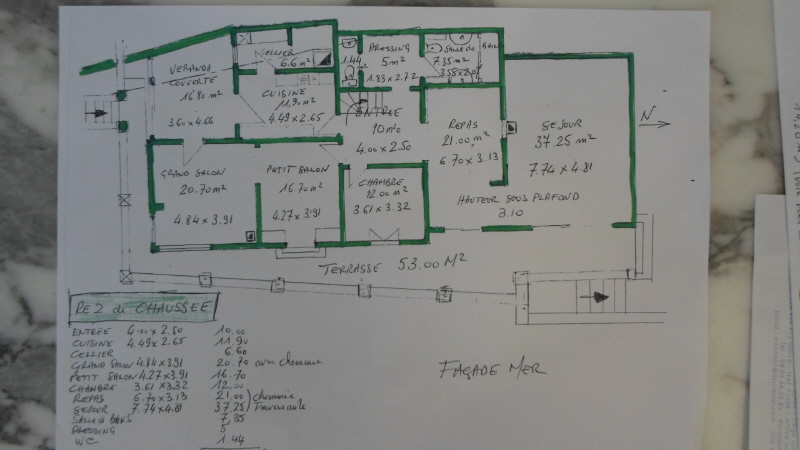 VERANDA
COUVERTE
16.80 m²
3.60 x 4.66
CELLIER
6.6 m²
1.44 m²
DRESSING
5 m²
1.83 x 2.72
SALLE DE BAIN
7.35 m²
CUISINE
11.90 m²
4.49 x 2.65
ENTREE
10 m²
4.00 x 2.50
REPAS
21.00 m²
6.70 x 3.13
SEJOUR
37.25 m²
7.74 x 4.81
N
GRAND SALON
20.70 m²
4.84 x 3.91
PETIT SALON
16.70 m²
4.27 x 3.91
CHAMBRE
12.00 m²
3.61 x 3.32
HAUTEUR SOUS PLAFOND
3.10
TERRASSE 53.00 M²
REZ de CHAUSSEE
ENTREE 4.00 x 2.80 10.00
CUISINE 4.49 x 2.65 11.90
CELLIER 6.60
GRAND SALON 4.84 x 3.91 20.70 avec cheminee
PETIT SALON 4.27 x 3.91 16.70
CHAMBRE 3.61 x 3.32 12.00
REPAS 6.70 x 3.13 21.00 cheminee
SEJOUR 7.74 x 4.81 37.25
SALLE de BAINS 7,35
DRESSING 5
WC 1.44
FAÇADE MER